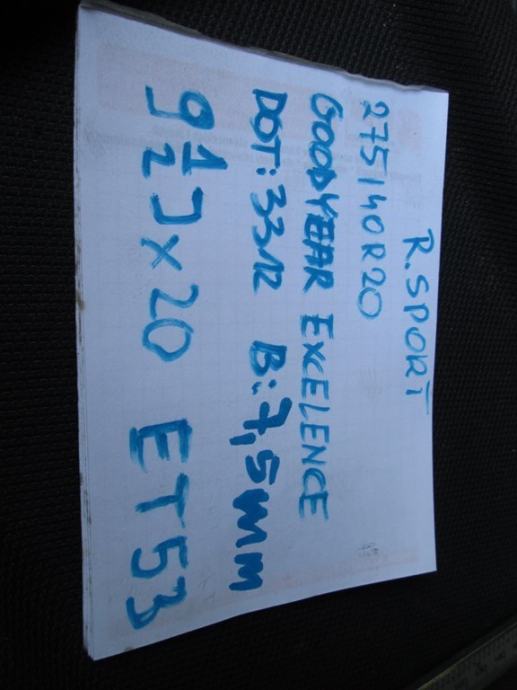 R.SPORT
275/40R20
GOODYEAR EXCELENCE
DOT:3312 B:7,5MM
9 1/2 J x 20 ET53